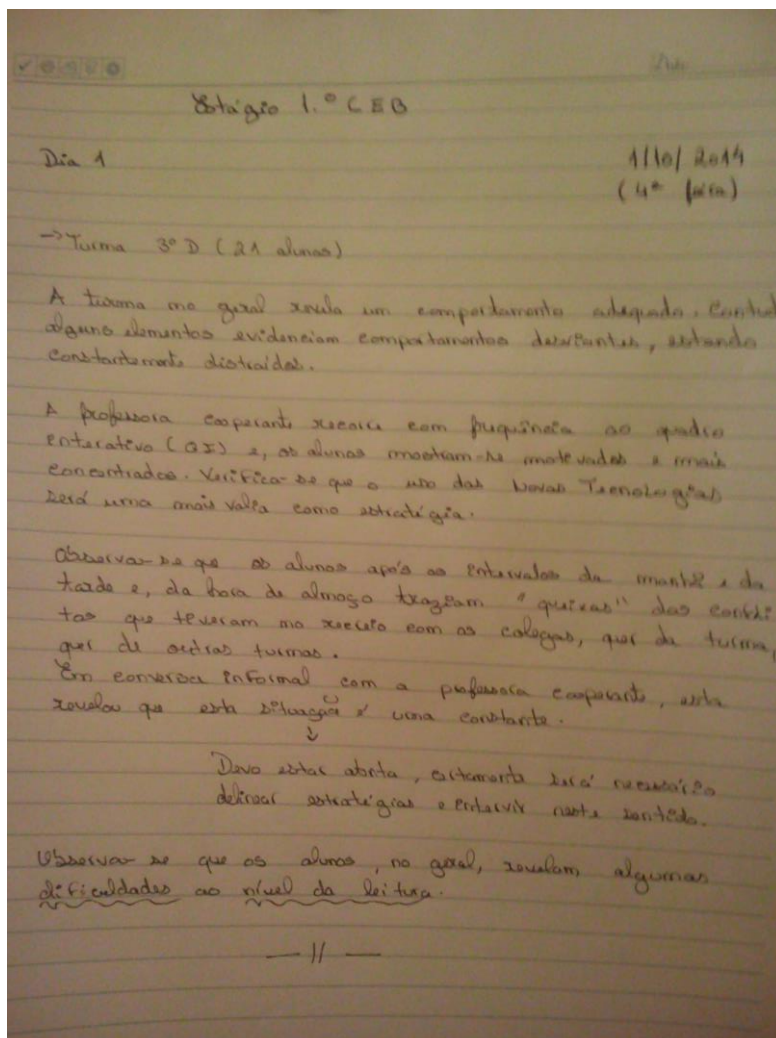 Data
Estágio 1.º CEB
Dia 1
1/10/2014
(4ª feira)
→ Turma 3º D (21 alunos)
A turma no geral revela um comportamento adequado. Contud
alguns elementos evidenciam comportamentos desviantes, estando
constantemente distraídos.
A professora cooperante recorre com frequência ao quadro
interativo (QI) e, os alunos mostram-se motivados e mais
concentrados. Verifica-se que o uso das Novas Tecnologias
será uma mais valia como estratégia.
Observa-se que os alunos após os intervalos da manhã e da
tarde e, da hora de almoço traziam "queixas" dos confli
tos que tiveram no recreio com os colegas, quer da turma,
quer de outras turmas.
Em conversa informal com a professora cooperante, esta
revelou que esta situação é uma constante.
↓
Devo estar atenta, certamente será necessário
delinear estratégias e intervir neste sentido.
Observa-se que os alunos, no geral, revelam algumas
dificuldades ao nível da leitura.
— // —